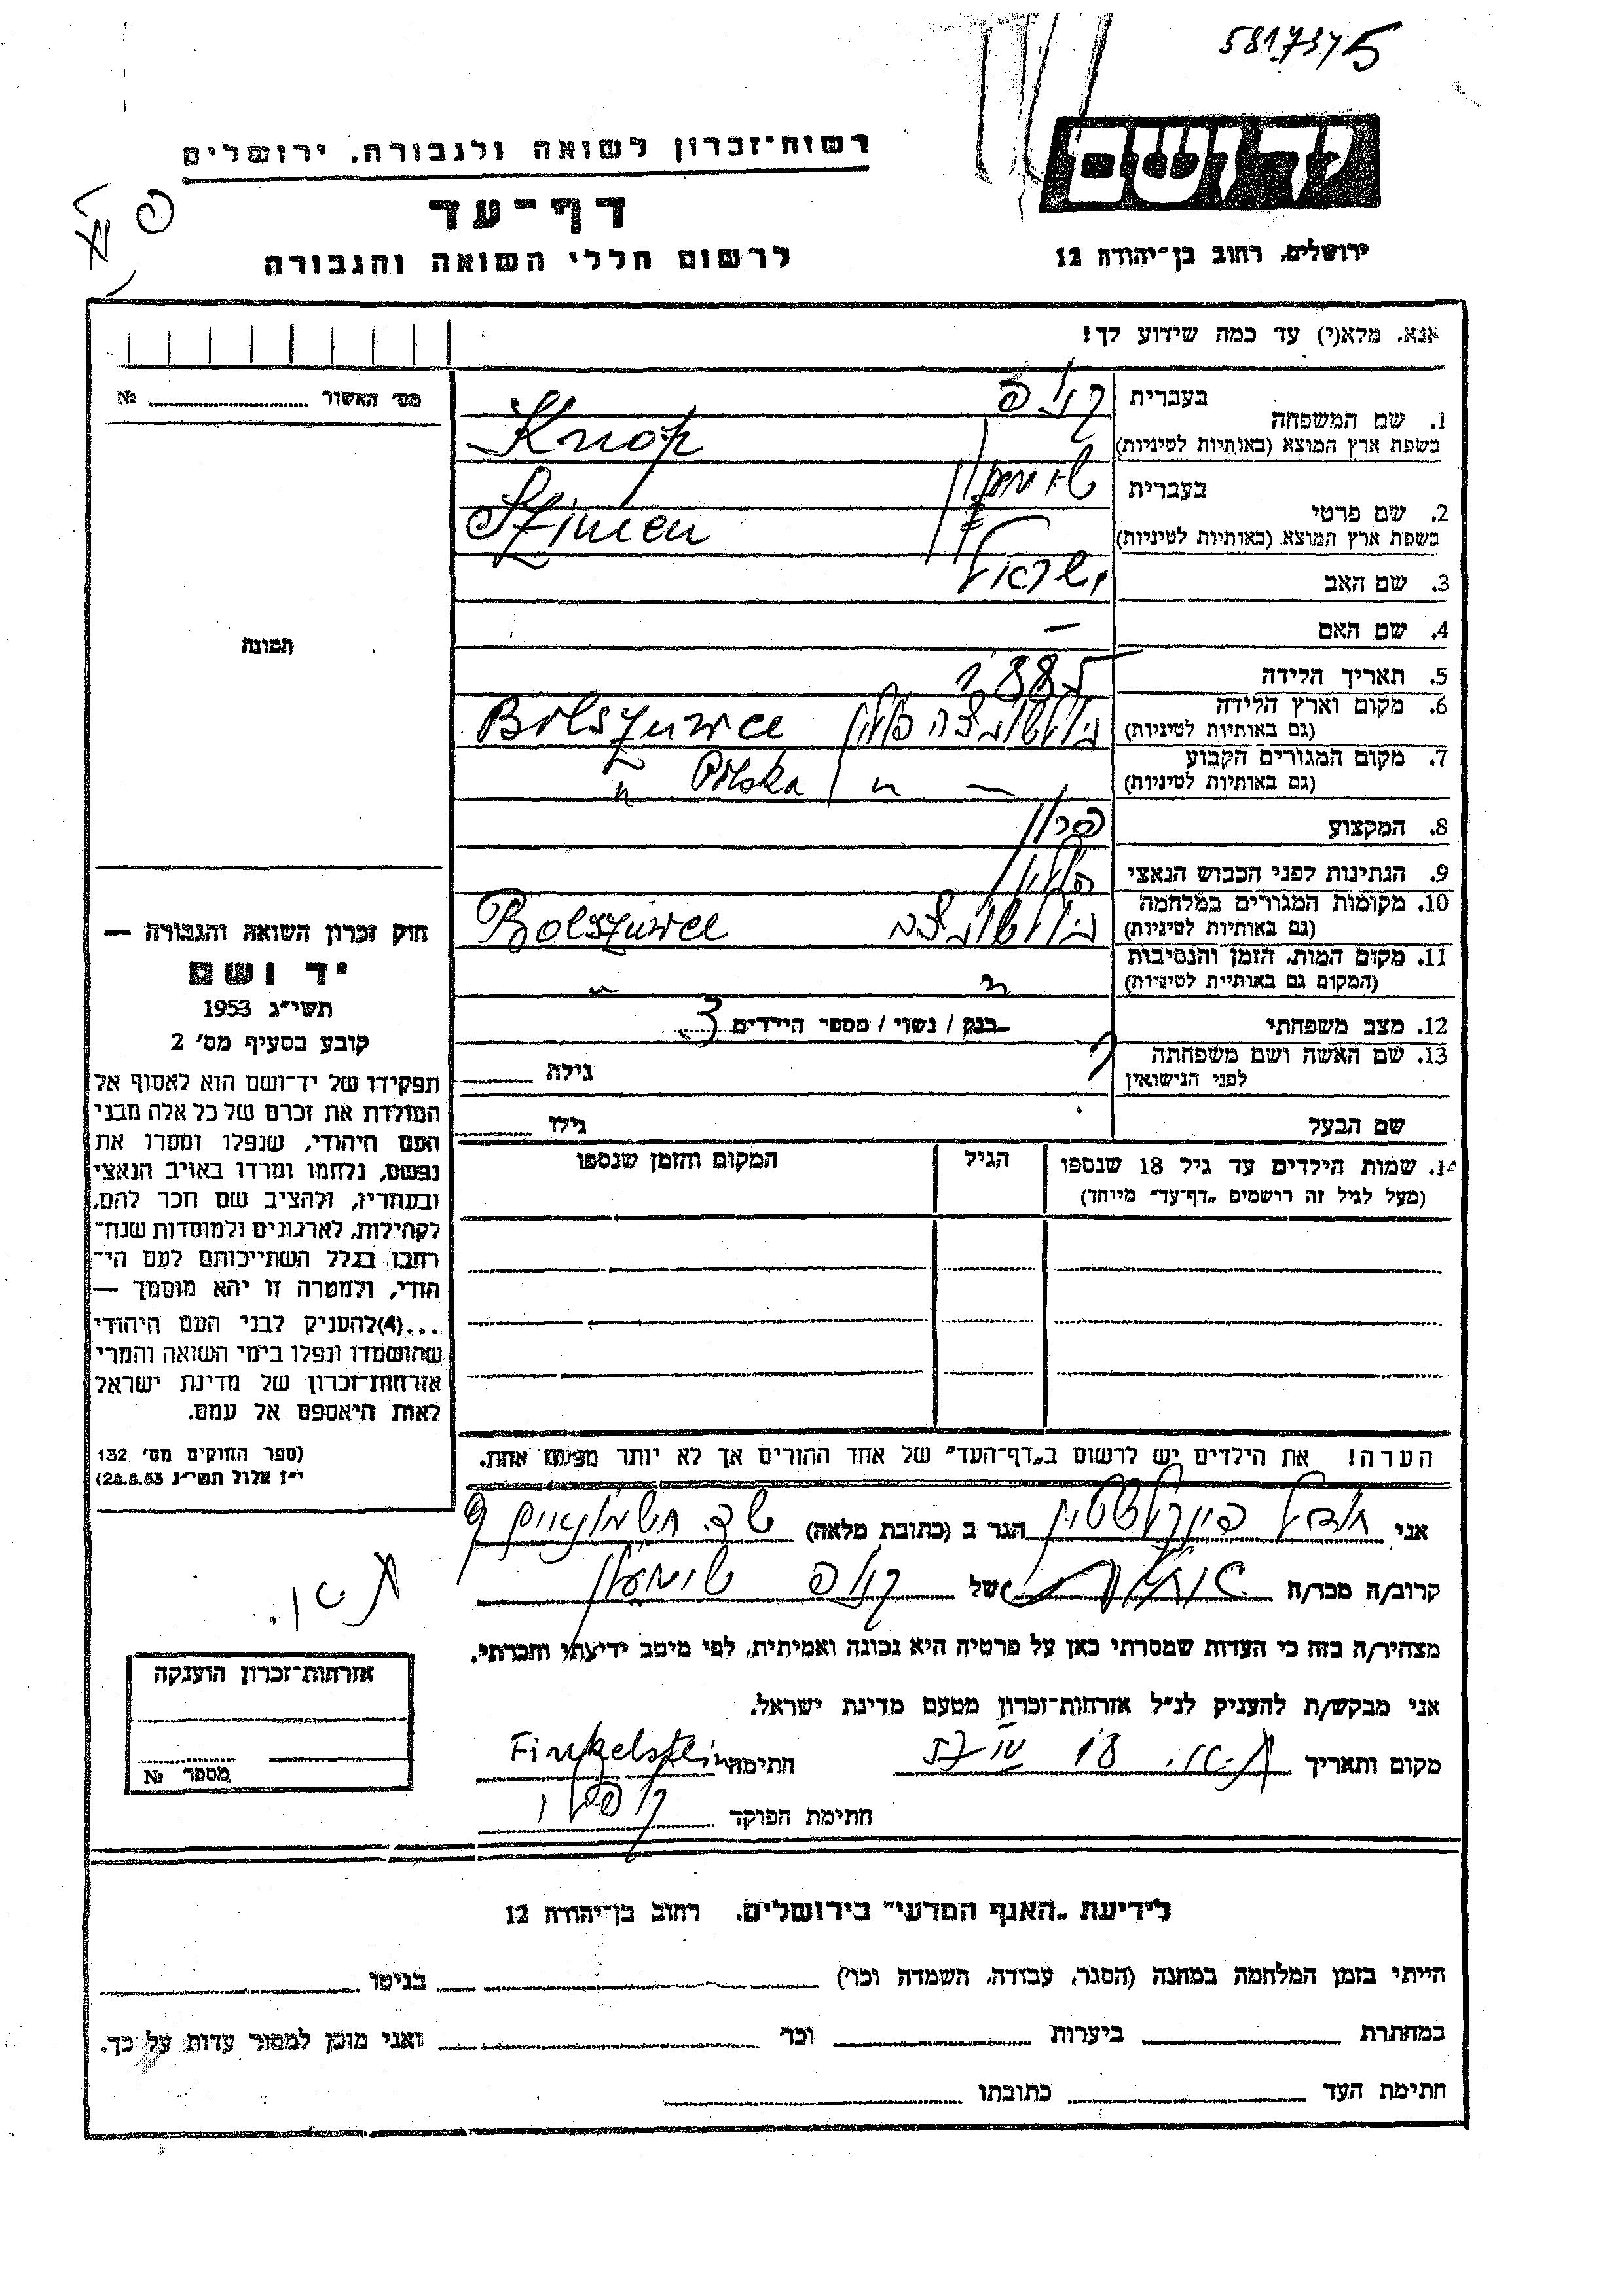 5817375
רשות־זכרון לשואה ולגבורה, ירושלים
דף־עד
לרשום חללי השואה והגבורה
ידושם
ירושלים, רחוב בן־יהודה 12
אנא, מלא(י) עד כמה שידוע לך!
מס׳ האשור № 
1. שם המשפחה בעברית קנופ
בשפת ארץ המוצא (באותיות לטיניות) Knop
2. שם פרטי בעברית
בשפת ארץ המוצא (באותיות לטיניות) Szimen
3. שם האב ישראל
4. שם האם –
תמונה
5. תאריך הלידה 1885
6. מקום וארץ הלידה
(גם באותיות לטיניות) בולשובצה פולין Bolszuwce
7. מקום המגורים הקבוע
(גם באותיות לטיניות) — " Polska "
8. המקצוע
9. הנתינות לפני הכבוש הנאצי פולין
10. מקומות המגורים במלחמה
(גם באותיות לטיניות) בולשובצה Bolszuwce
11. מקום המות, הזמן והנסיבות
(המקום גם באותיות לטיניות) " "
12. מצב משפחתי רווק / נשוי / מספר הילדים 3
13. שם האשה ושם משפחתה ? גילה
לפני הנישואין
שם הבעל גילו
14. שמות הילדים עד גיל 18 שנספו הגיל המקום והזמן שנספו
(מעל לגיל זה רושמים „דף־עד״ מיוחד)
חוק זכרון השואה והגבורה —
יד ושם
תשי״ג 1953
קובע בסעיף מס׳ 2
תפקידו של יד־ושם הוא לאסוף אל
המולדת את זכרם של כל אלה מבני
העם היהודי, שנפלו ומסרו את
נפשם, נלחמו ומרדו באויב הנאצי
ובעוזריו, ולהציב שם וזכר להם,
לקהילות, לארגונים ולמוסדות שנח־
רבו בגלל השתייכותם לעם הי־
הודי, ולמטרה זו יהא מוסמך —
...(4)להעניק לבני העם היהודי
שהושמדו ונפלו בימי השואה והמרי
אזרחות־זכרון של מדינת ישראל
לאות היאספם אל עמם.
(ספר החוקים מס׳ 132
י״ז אלול תשי״ג 28.8.53)
הערה! את הילדים יש לרשום ב„דף־העד״ של אחד ההורים אך לא יותר מפעם אחת.
אני פינקלשטיין הגר ב (כתובת מלאה) חשמונאים 9
קרוב/ה מכר/ה של קנופ שימעון
מצהיר/ה בזה כי העדות שמסרתי כאן על פרטיה היא נכונה ואמיתית, לפי מיטב ידיעתי והכרתי.
אני מבקש/ת להעניק לנ״ל אזרחות־זכרון מטעם מדינת ישראל.
מקום ותאריך חתימה Finkelstein
חתימת הפוקד
אזרחות־זכרון הוענקה
מספר №
לידיעת „האגף המדעי״ בירושלים, רחוב בן־יהודה 12
הייתי בזמן המלחמה במחנה (הסגר, עבודה, השמדה וכו׳) בגיטו
במחתרת ביערות וכו׳ ואני מוכן למסור עדות על כך.
חתימת העד כתובתו